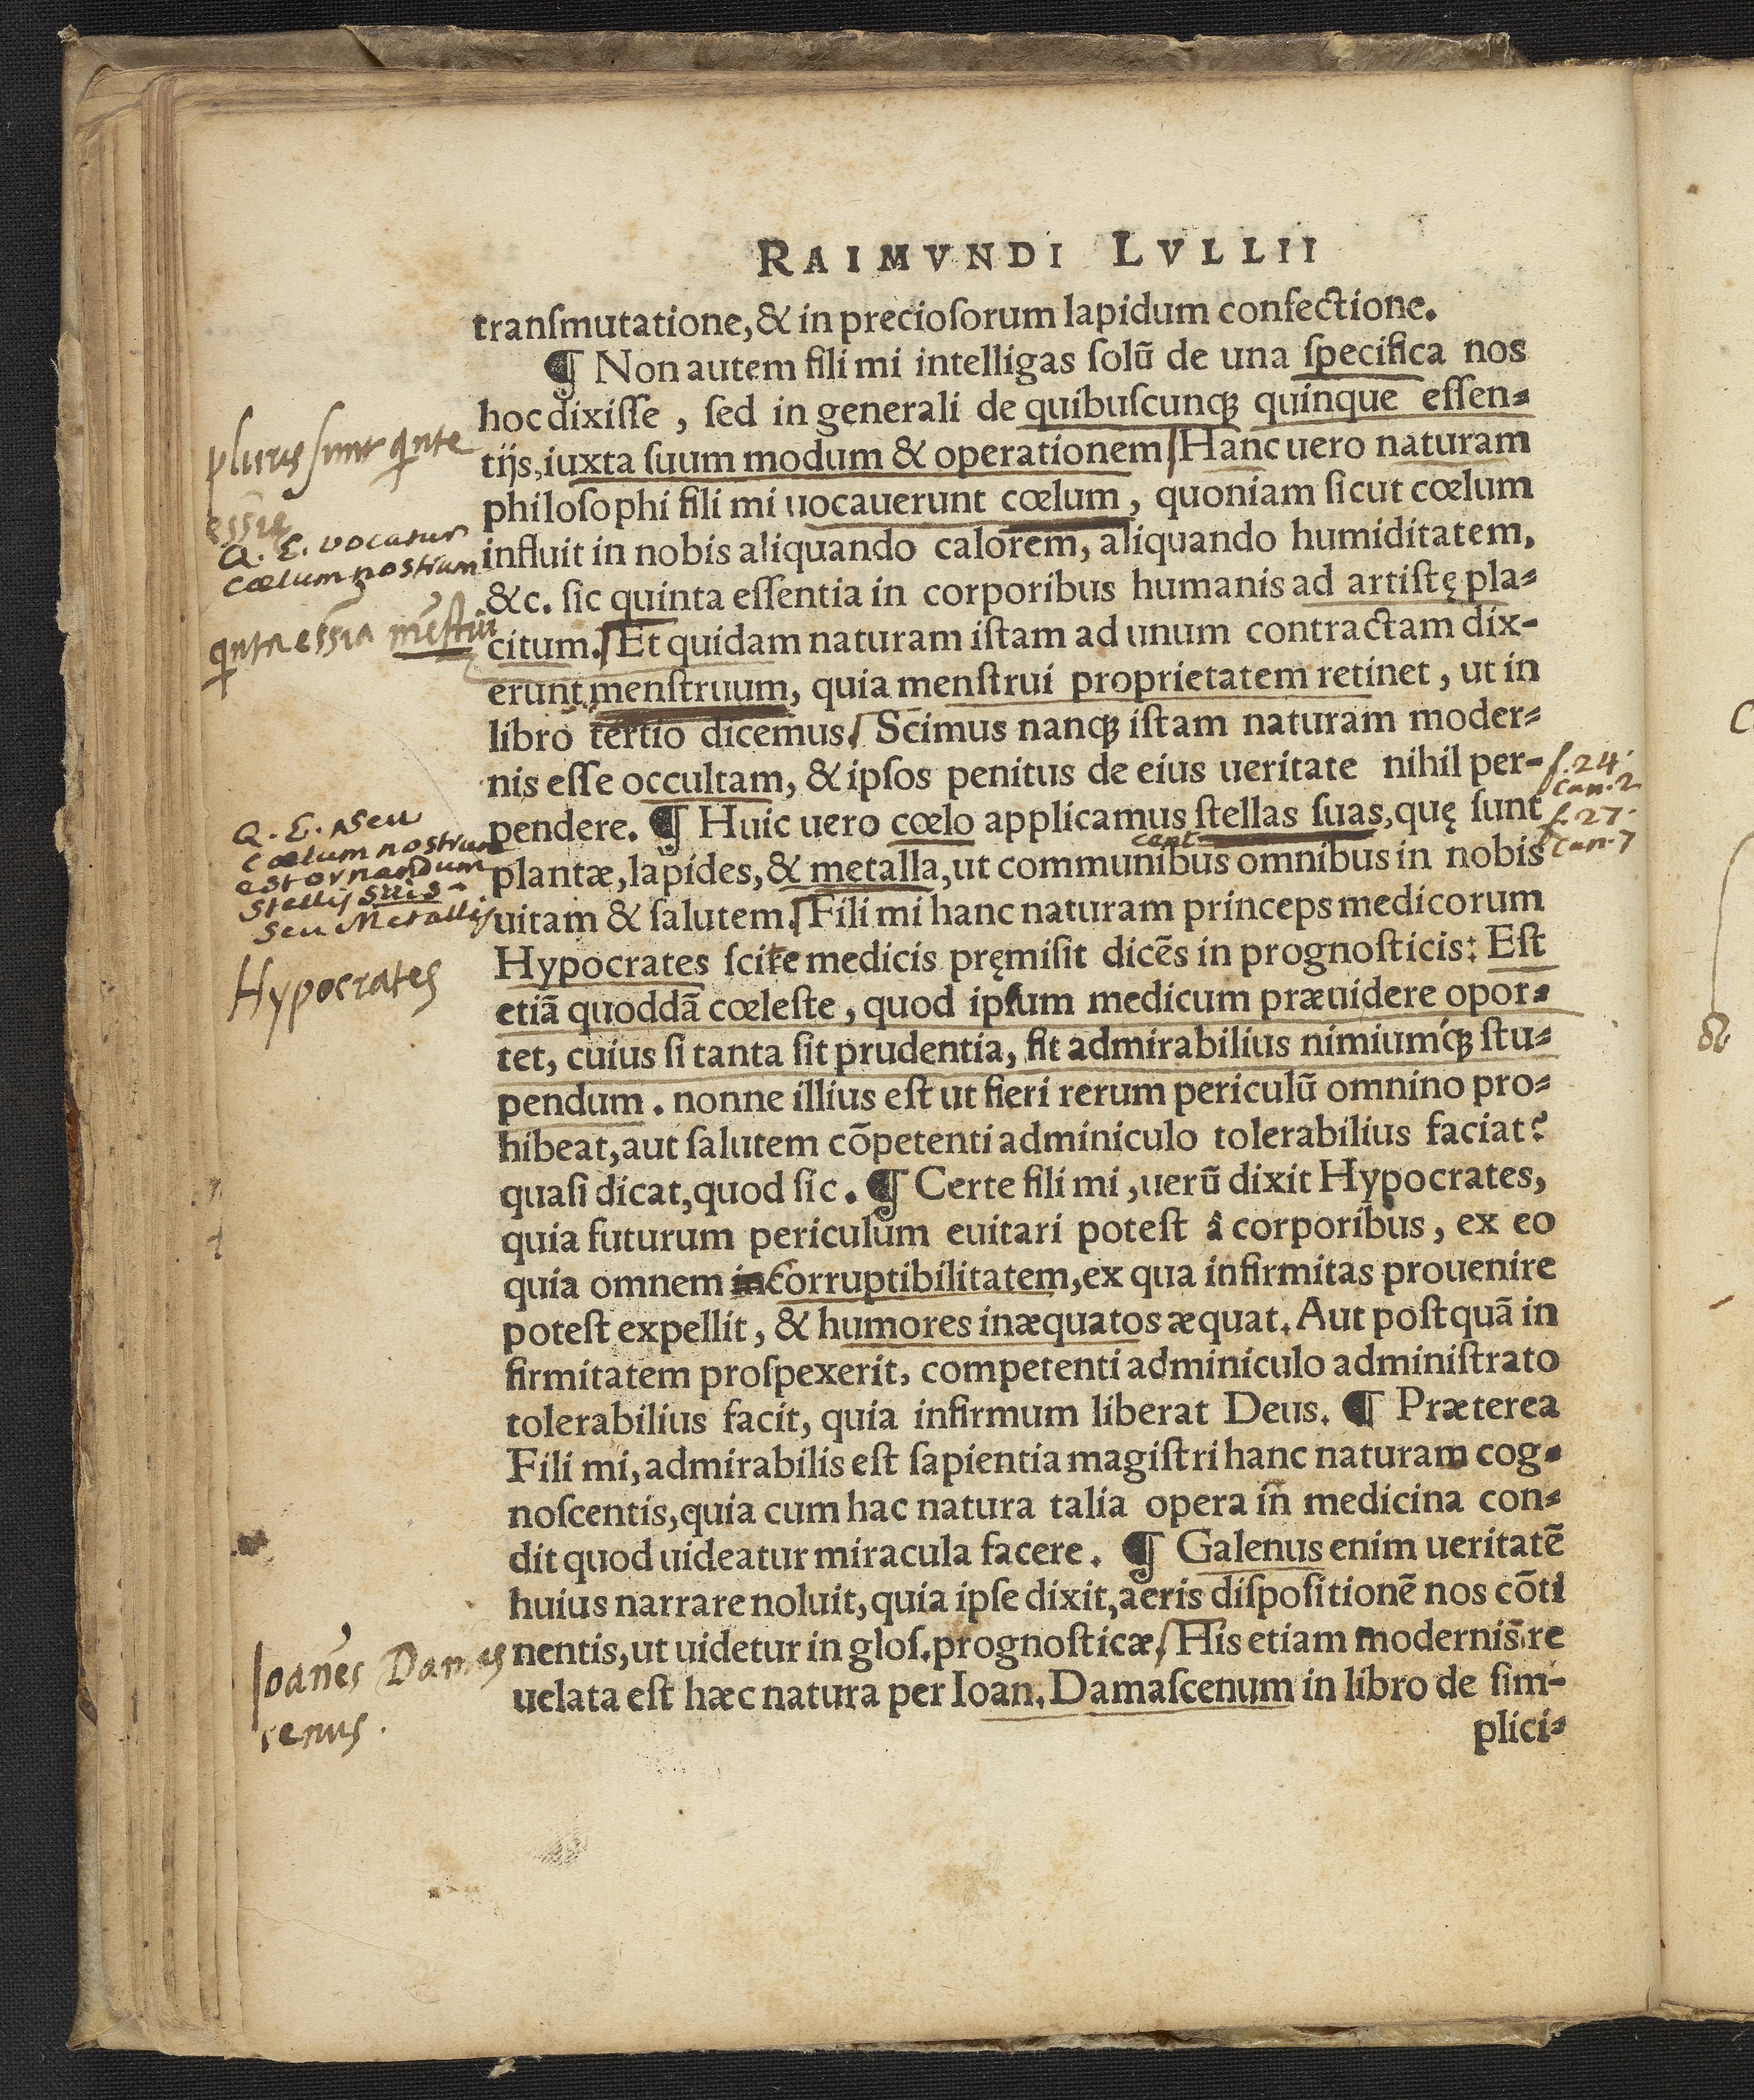 RAIMVNDI LVLLII
tranſmutatione, & in precioſorum lapidum confectione.
¶ Non autem fili mi intelligas ſolū de una ſpecifica nos
hoc dixiſſe, ſed in generali de quibuſcunqꝫ quinque eſſen-
tijs, iuxta ſuum modum & operationem / Hanc uero naturam
philoſophi fili mi uocauerunt cœlum, quoniam ſicut cœlum
influit in nobis aliquando calorem, aliquando humiditatem,
&c. ſic quinta eſſentia in corporibus humanis ad artiſtę pla-
citum. Et quidam naturam iſtam ad unum contractam dix-
erunt menſtruum, quia menſtrui proprietatem retinet, ut in
libro tertio dicemus. Scimus nanqꝫ iſtam naturam moder-
nis eſſe occultam, & ipſos penitus de eius ueritate nihil per-
pendere. ¶ Huic uero cœlo applicamus ſtellas ſuas, quę ſunt
plantæ, lapides, & metalla, ut communibus omnibus in nobis
uitam & ſalutem. Fili mi hanc naturam princeps medicorum
Hypocrates ſcite medicis pręmiſit dicēs in prognoſticis: Eſt
etiā quoddā cœleſte, quod ipſum medicum præuidere opor-
tet, cuius ſi tanta ſit prudentia, fit admirabilius nimiumqꝫ ſtu-
pendum. nonne illius eſt ut fieri rerum periculū omnino pro-
hibeat, aut ſalutem cōpetenti adminiculo tolerabilius faciat?
quaſi dicat, quod ſic. ¶ Certe fili mi, uerū dixit Hypocrates,
quia futurum periculum euitari poteſt â corporibus, ex eo
quia omnem incorruptibilitatem, ex qua infirmitas prouenire
poteſt expellit, & humores inæquatos æquat. Aut poſtquā in
firmitatem proſpexerit, competenti adminiculo adminiſtrato
tolerabilius facit, quia infirmum liberat Deus. ¶ Præterea
Fili mi, admirabilis eſt ſapientia magiſtri hanc naturam cog-
noſcentis, quia cum hac natura talia opera in medicina con-
dit quod uideatur miracula facere. ¶ Galenus enim ueritatē
huius narrare noluit, quia ipſe dixit, aeris diſpoſitionē nos cōti
nentis, ut uidetur in gloſ. prognoſticæ / His etiam modernis re
uelata eſt hæc natura per Ioan. Damaſcenum in libro de ſim-
plici-
plures sunt qinte
essie
Q. E. vocatur
cœlum nostrum
qinta essīa mēstru
Q. E. seu
Cœlum nostrum
est ornandum
Stellis suis
seu Metallis
Hypocrates
Ioanēs Damas
cenus.
f. 24.
Can. 2
f. 27.
Can. 7
cent